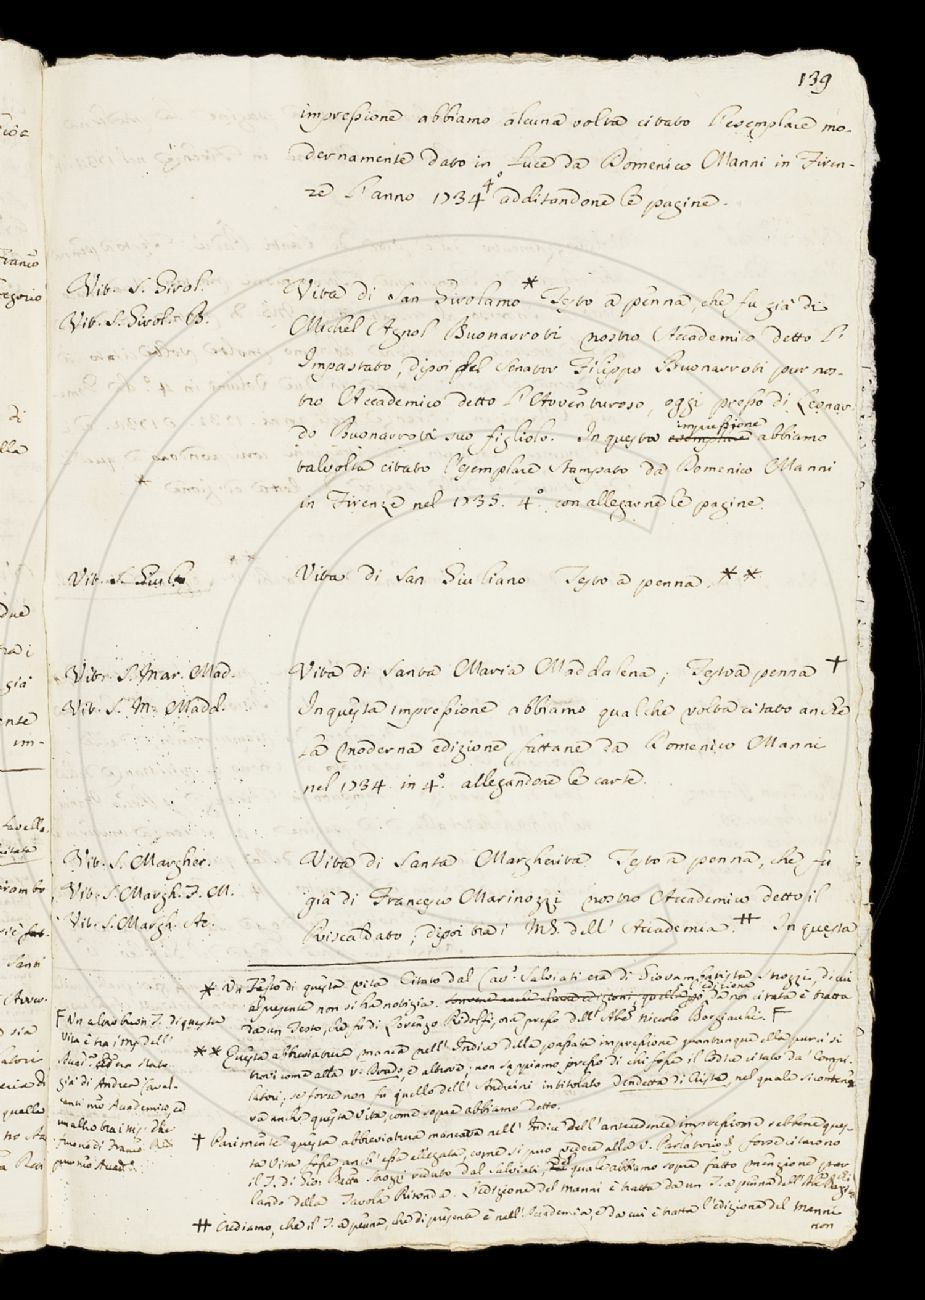 139
impressione abbiamo alcuna volta citato l'esemplare mo-
dernamente dato in Luce da Domenico Manni in Firen-
ze l'anno 1734 4º additandone le pagine.
Vit. S. Girol.
Vit. S. Girol. B.
Vita di San Girolamo * Testo a penna, che fu già di
Michel Agnol Buonarroti nostro Accademico detto l'
Impastato, dipoi del Senator Filippo Buonarroti pur nos-
tro Accademico detto l'Avventuroso, oggi presso di Leonar-
do Buonarroti suo figliolo. In questa impressione abbiamo
talvolta citato l'esemplare stampato da Domenico Manni
in Firenze nel 1735. 4º. con allegarne le pagine.
Vit. S. Giul.
Vita di San Giuliano Testo a penna. **
Vit. S. Mar. Mad.
Vit. S. M. Madd.
Vita di Santa Maria Maddalena; Testo a penna †
In questa impressione abbiamo qualche volta citato anche
la moderna edizione fattane da Domenico Manni
nel 1734. in 4º. allegandone le carte.
Vit. S. Margher.
Vit. S. Margh. F. M.
Vit. S. Margh. Ac.
Vita di Santa Margherita Testo a penna, che fu
già di Francesco Marinozzi nostro Accademico detto il
Riscaldato, dipoi tra i MS. dell'Accademia. # In questa
* Un Testo di questa vita Citato dal Cav. Salviati era di Giovambatista Strozzi, di cui
al presente non si ha notizia. edizione da noi citata è tratta
da un Testo, che fu di Lorenzo Ridolfi, ora presso dell' Abe. Niccolò Bargiachi. F
F Un altro buon T. di questa
Vita è tra i MSS. dell'
già di Andrea
nostro Accademico, ed
un altro tra i MSS. che
furono di Franc. Redi
pur nro Accad.
** Questa abbreviatura manca nell' Indice della passata impressione quantunque ella pure si
trovi come alla v. Brado, e altrove; non sappiamo presso di chi fosse il Codice citato da' Compi-
latori, se forse non fu quello dell' Andreini intitolato Vendetta di Cristo, nel quale si contene-
va anche questa Vita, come sopra abbiamo detto.
† Parimente questa abbreviatura mancava nell' Indice dell'antecedente impressione sebbene ques-
ta Vita fosse anch' essa allegata, come si può vedere alla V. Parlatorio §. forse citarono
il T. di Gio: Batta Strozzi veduto dal Salviati, quale abbiamo sopra fatto menzione par-
lando della Tavola Ritonda. L'edizione del Manni è tratta da un T. a penna dell' Abe
# Crediamo, che il T. a penna, che di presente è nell' Accademia, e da cui è tratta l'edizione del Manni
non